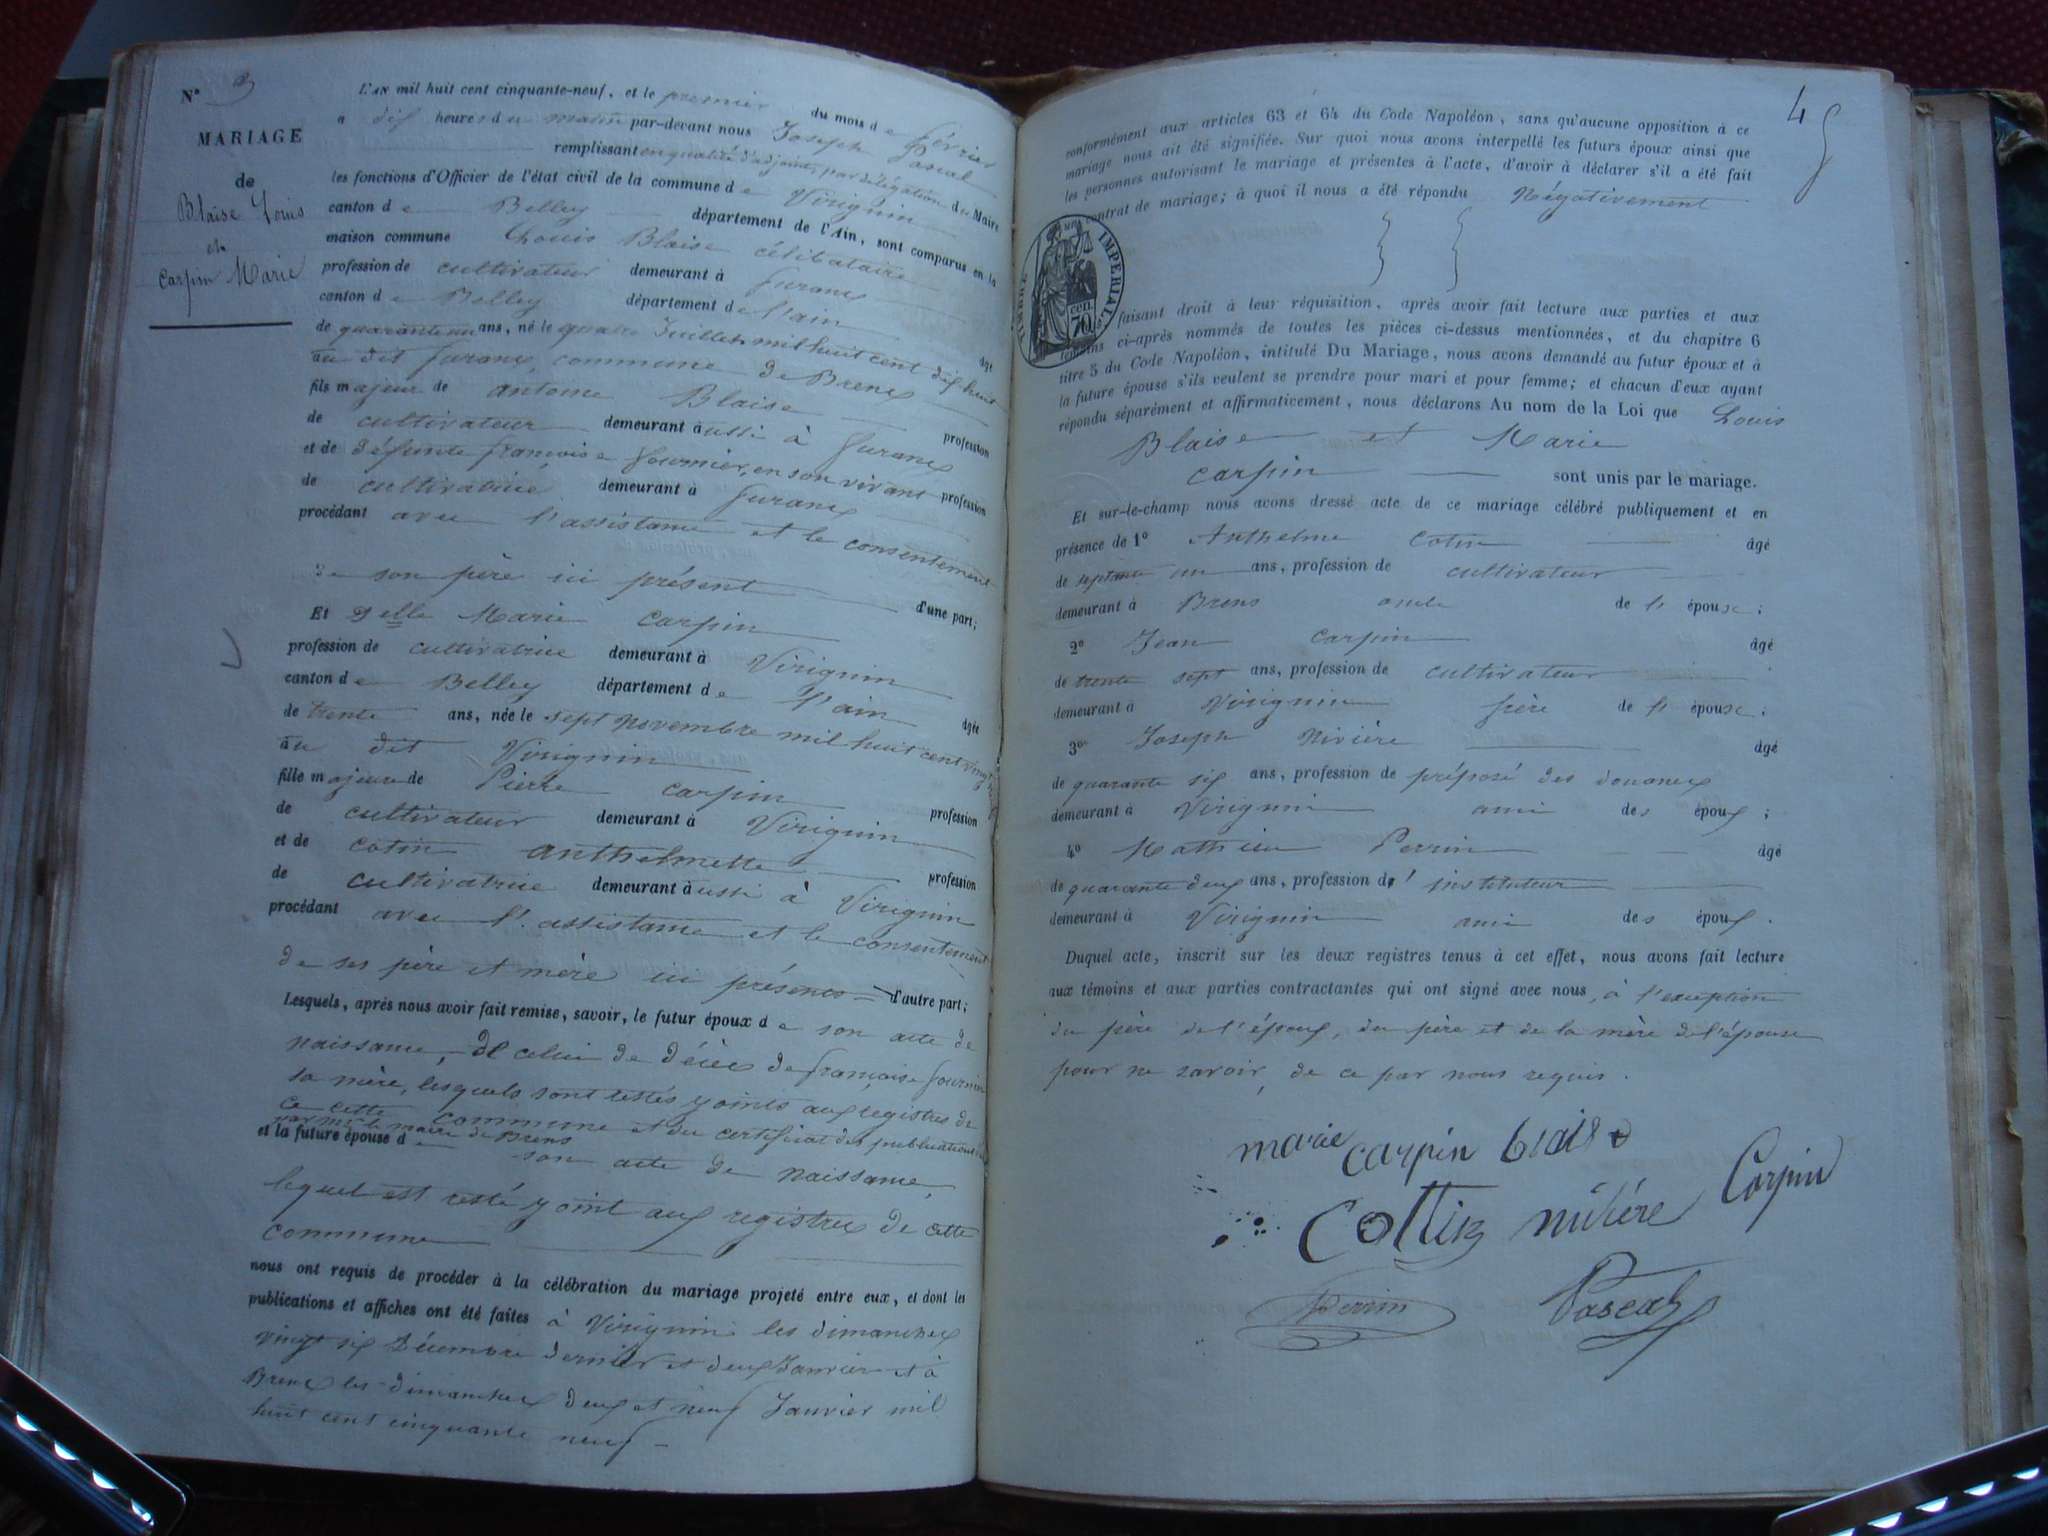 N° 3
MARIAGE
de
Blaise Louis
et
Carpin Marie
L'AN mil huit cent cinquante-neuf, et le premier du mois de février
a dix heures du matin par-devant nous Joseph Pascal
remplissant en qualité d'adjoint, par délégation du Maire
les fonctions d'Officier de l'état civil de la commune de Virignin
canton de Belley département de l'Ain, sont comparus en la
maison commune Louis Blaise célibataire
profession de cultivateur demeurant à furans
canton de Belley département de l'ain âgé
de quarante un ans, né le quatre Juillet mil huit cent dix huit
au dit furans, commune de Brens
fils majeur de antoine Blaise profession
de cultivateur demeurant aussi à furans
et de défunte françoise fournier, en son vivant profession
de cultivatrice demeurant à furans
procédant avec l'assistance et le consentement
de son père ici présent d'une part;
Et Delle Marie Carpin
profession de cultivatrice demeurant à Virignin
canton de Belley département de l'ain âgée
de trente ans, née le sept novembre mil huit cent vingt
au dit Virignin
fille majeure de Pierre Carpin profession
de cultivateur demeurant à Virignin
et de Cotin anthelmette profession
de cultivatrice demeurant aussi à Virignin
procédant avec l'assistance et le consentement
de ses père et mère ici présents d'autre part;
Lesquels, après nous avoir fait remise, savoir, le futur époux de son acte de
naissance, de celui de décès de françoise fournier
sa mère, lesquels sont restés joints aux registres de
cette commune et du certificat des publications
par mr le maire de Brens
et la future épouse de son acte de naissance,
lequel est resté joint aux registres de cette
commune
nous ont requis de procéder à la célébration du mariage projeté entre eux, et dont les
publications et affiches ont été faites à Virignin les dimanches
vingt six Décembre dernier et deux Janvier et à
Brens les dimanches deux et neuf Janvier mil
huit cent cinquante neuf
4
conformément aux articles 63 et 64 du Code Napoléon, sans qu'aucune opposition à ce
mariage nous ait été signifiée. Sur quoi nous avons interpellé les futurs époux ainsi que
les personnes autorisant le mariage et présentes à l'acte, d'avoir à déclarer s'il a été fait
contrat de mariage; à quoi il nous a été répondu Négativement
TIMBRE IMPERIAL
70 cen.
faisant droit à leur réquisition, après avoir fait lecture aux parties et aux
témoins ci-après nommés de toutes les pièces ci-dessus mentionnées, et du chapitre 6
titre 5 du Code Napoléon, intitulé Du Mariage, nous avons demandé au futur époux et à
la future épouse s'ils veulent se prendre pour mari et pour femme; et chacun d'eux ayant
répondu séparément et affirmativement, nous déclarons Au nom de la Loi que Louis
Blaise et Marie
Carpin sont unis par le mariage.
Et sur-le-champ nous avons dressé acte de ce mariage célébré publiquement et en
présence de 1° Anthelme Cotin âgé
de septante un ans, profession de cultivateur
demeurant à Brens oncle de l'épouse;
2° Jean Carpin âgé
de trente sept ans, profession de cultivateur
demeurant à Virignin frère de l'épouse;
3° Joseph Nivière âgé
de quarante six ans, profession de préposé des douanes
demeurant à Virignin ami des époux;
4° Mathieu Perrin âgé
de quarante deux ans, profession d'instituteur
demeurant à Virignin ami des époux.
Duquel acte, inscrit sur les deux registres tenus à cet effet, nous avons fait lecture
aux témoins et aux parties contractantes qui ont signé avec nous, à l'exception
du père de l'époux, du père et de la mère de l'épouse
pour ne savoir, de ce par nous requis.
marie carpin blaise
Cottin nivière Carpin
Perrin Pascal